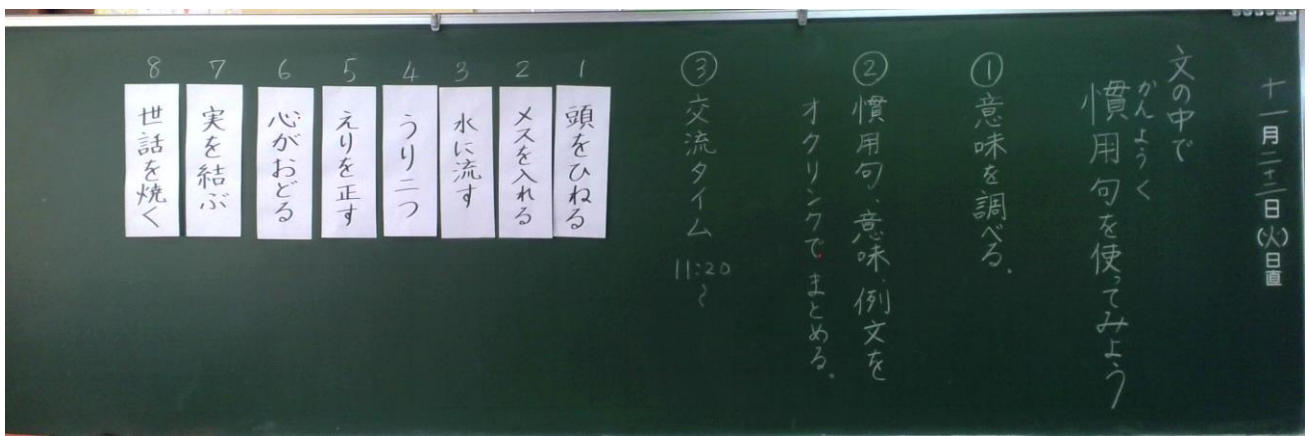 十一月二十二日(火)日直
文の中で
かんようく
慣用句を使ってみよう
①意味を調べる。
②慣用句、意味、例文を
オクリンクでまとめる。
③交流タイム 11:20〜
1 頭をひねる
2 メスを入れる
3 水に流す
4 うり二つ
5 えりを正す
6 心がおどる
7 実を結ぶ
8 世話を焼く